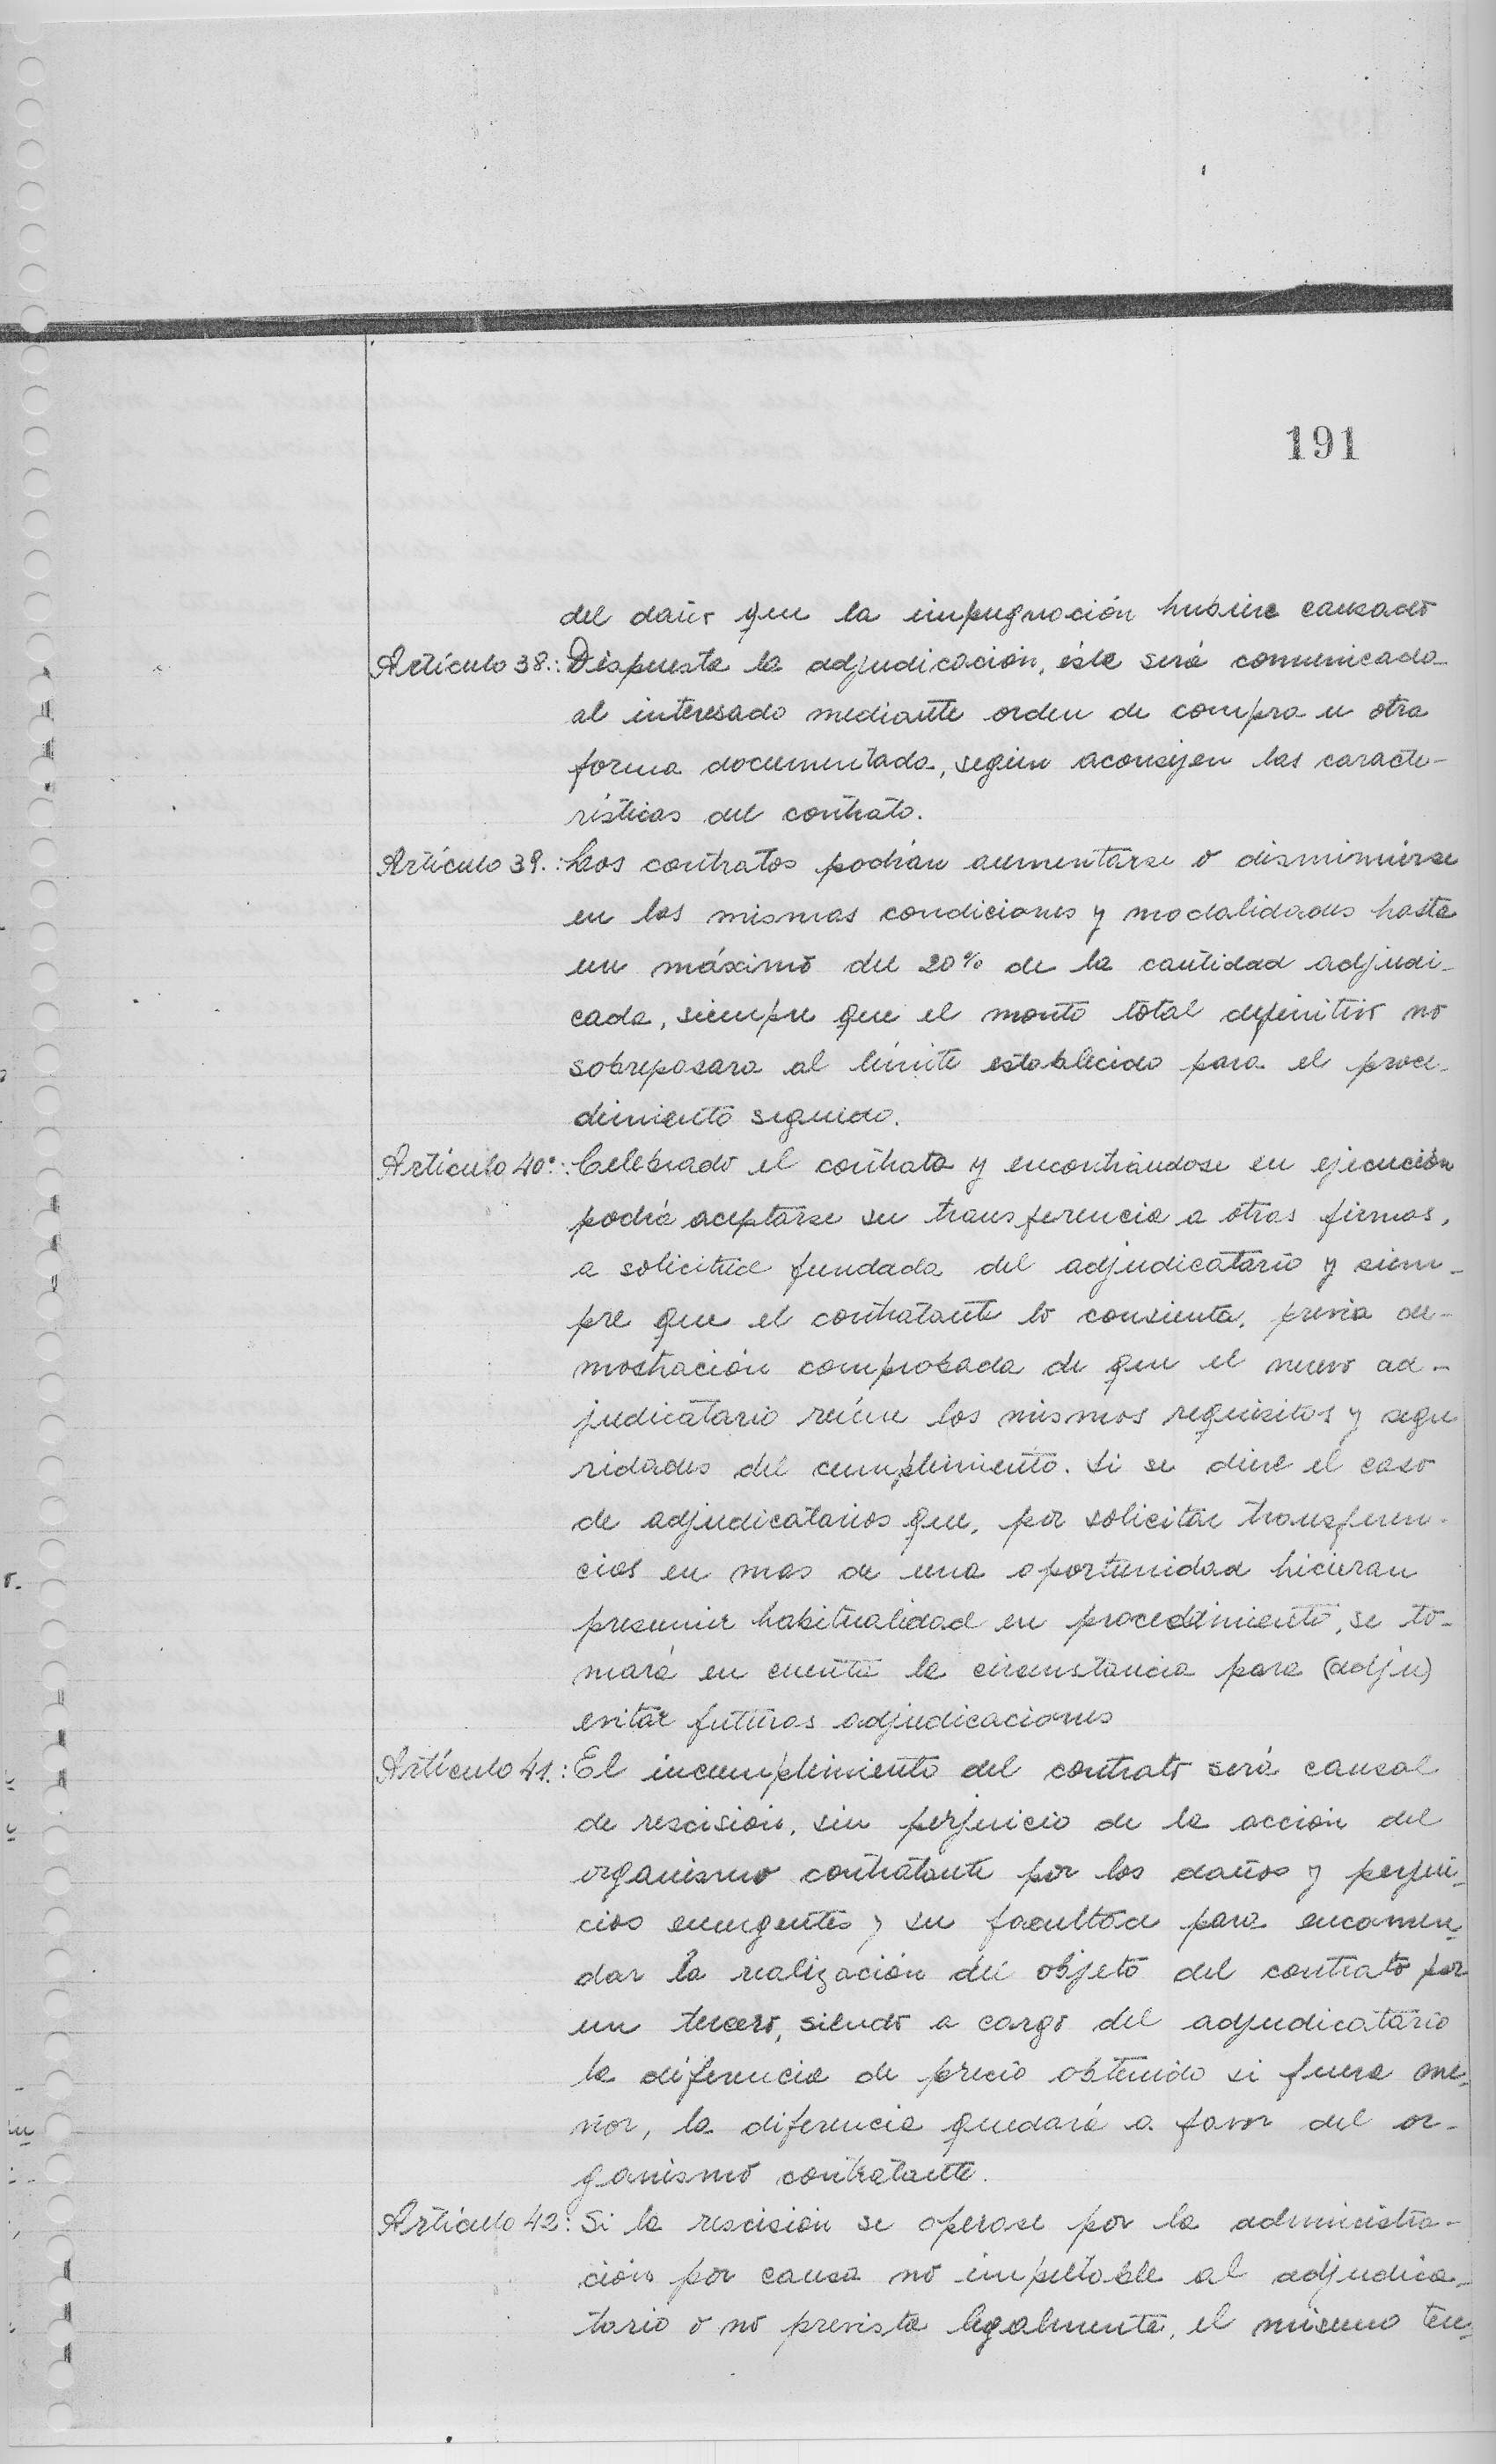 191
del daño que la impugnación hubiere causado
Artículo 38.: Dispuesta la adjudicación, ésta será comunicada
al interesado mediante orden de compra u otra
forma documentada, según aconsejen las caracte-
rísticas del contrato.
Artículo 39.: Los contratos podrían aumentarse o disminuirse
en las mismas condiciones y modalidades hasta
un máximo del 20% de la cantidad adjudi-
cada, siempre que el monto total definitivo no
sobrepasara al límite establecido para el proce-
dimiento seguido.
Artículo 40°: Celebrado el contrato y encontrándose en ejecución
podrá aceptarse su transferencia a otras firmas,
a solicitud fundada del adjudicatario y siem-
pre que el contratante lo consienta, previa de-
mostración comprobada de que el nuevo ad-
judicatario reúne los mismos requisitos y segu
ridades del cumplimiento. Si se diere el caso
de adjudicatarios que, por solicitar transferen-
cias en mas de una oportunidad hicieran
presumir habitualidad en procedimiento, se to-
mará en cuenta la circunstancia para (adju)
evitar futuras adjudicaciones
Artículo 41.: El incumplimiento del contrato será causal
de rescisión, sin perjuicio de la acción del
organismo contratante por los daños y perjui-
cios emergentes y su facultad para encomen-
dar la realización del objeto del contrato por
un tercero, siendo a cargo del adjudicatario
la diferencia de precio obtenido si fuera me-
nor, la diferencia quedará a favor del or-
ganismo contratante.
Artículo 42: Si la rescisión se operase por la administra-
ción por causa no imputable al adjudica-
tario o no prevista legalmente, el mismo ten-